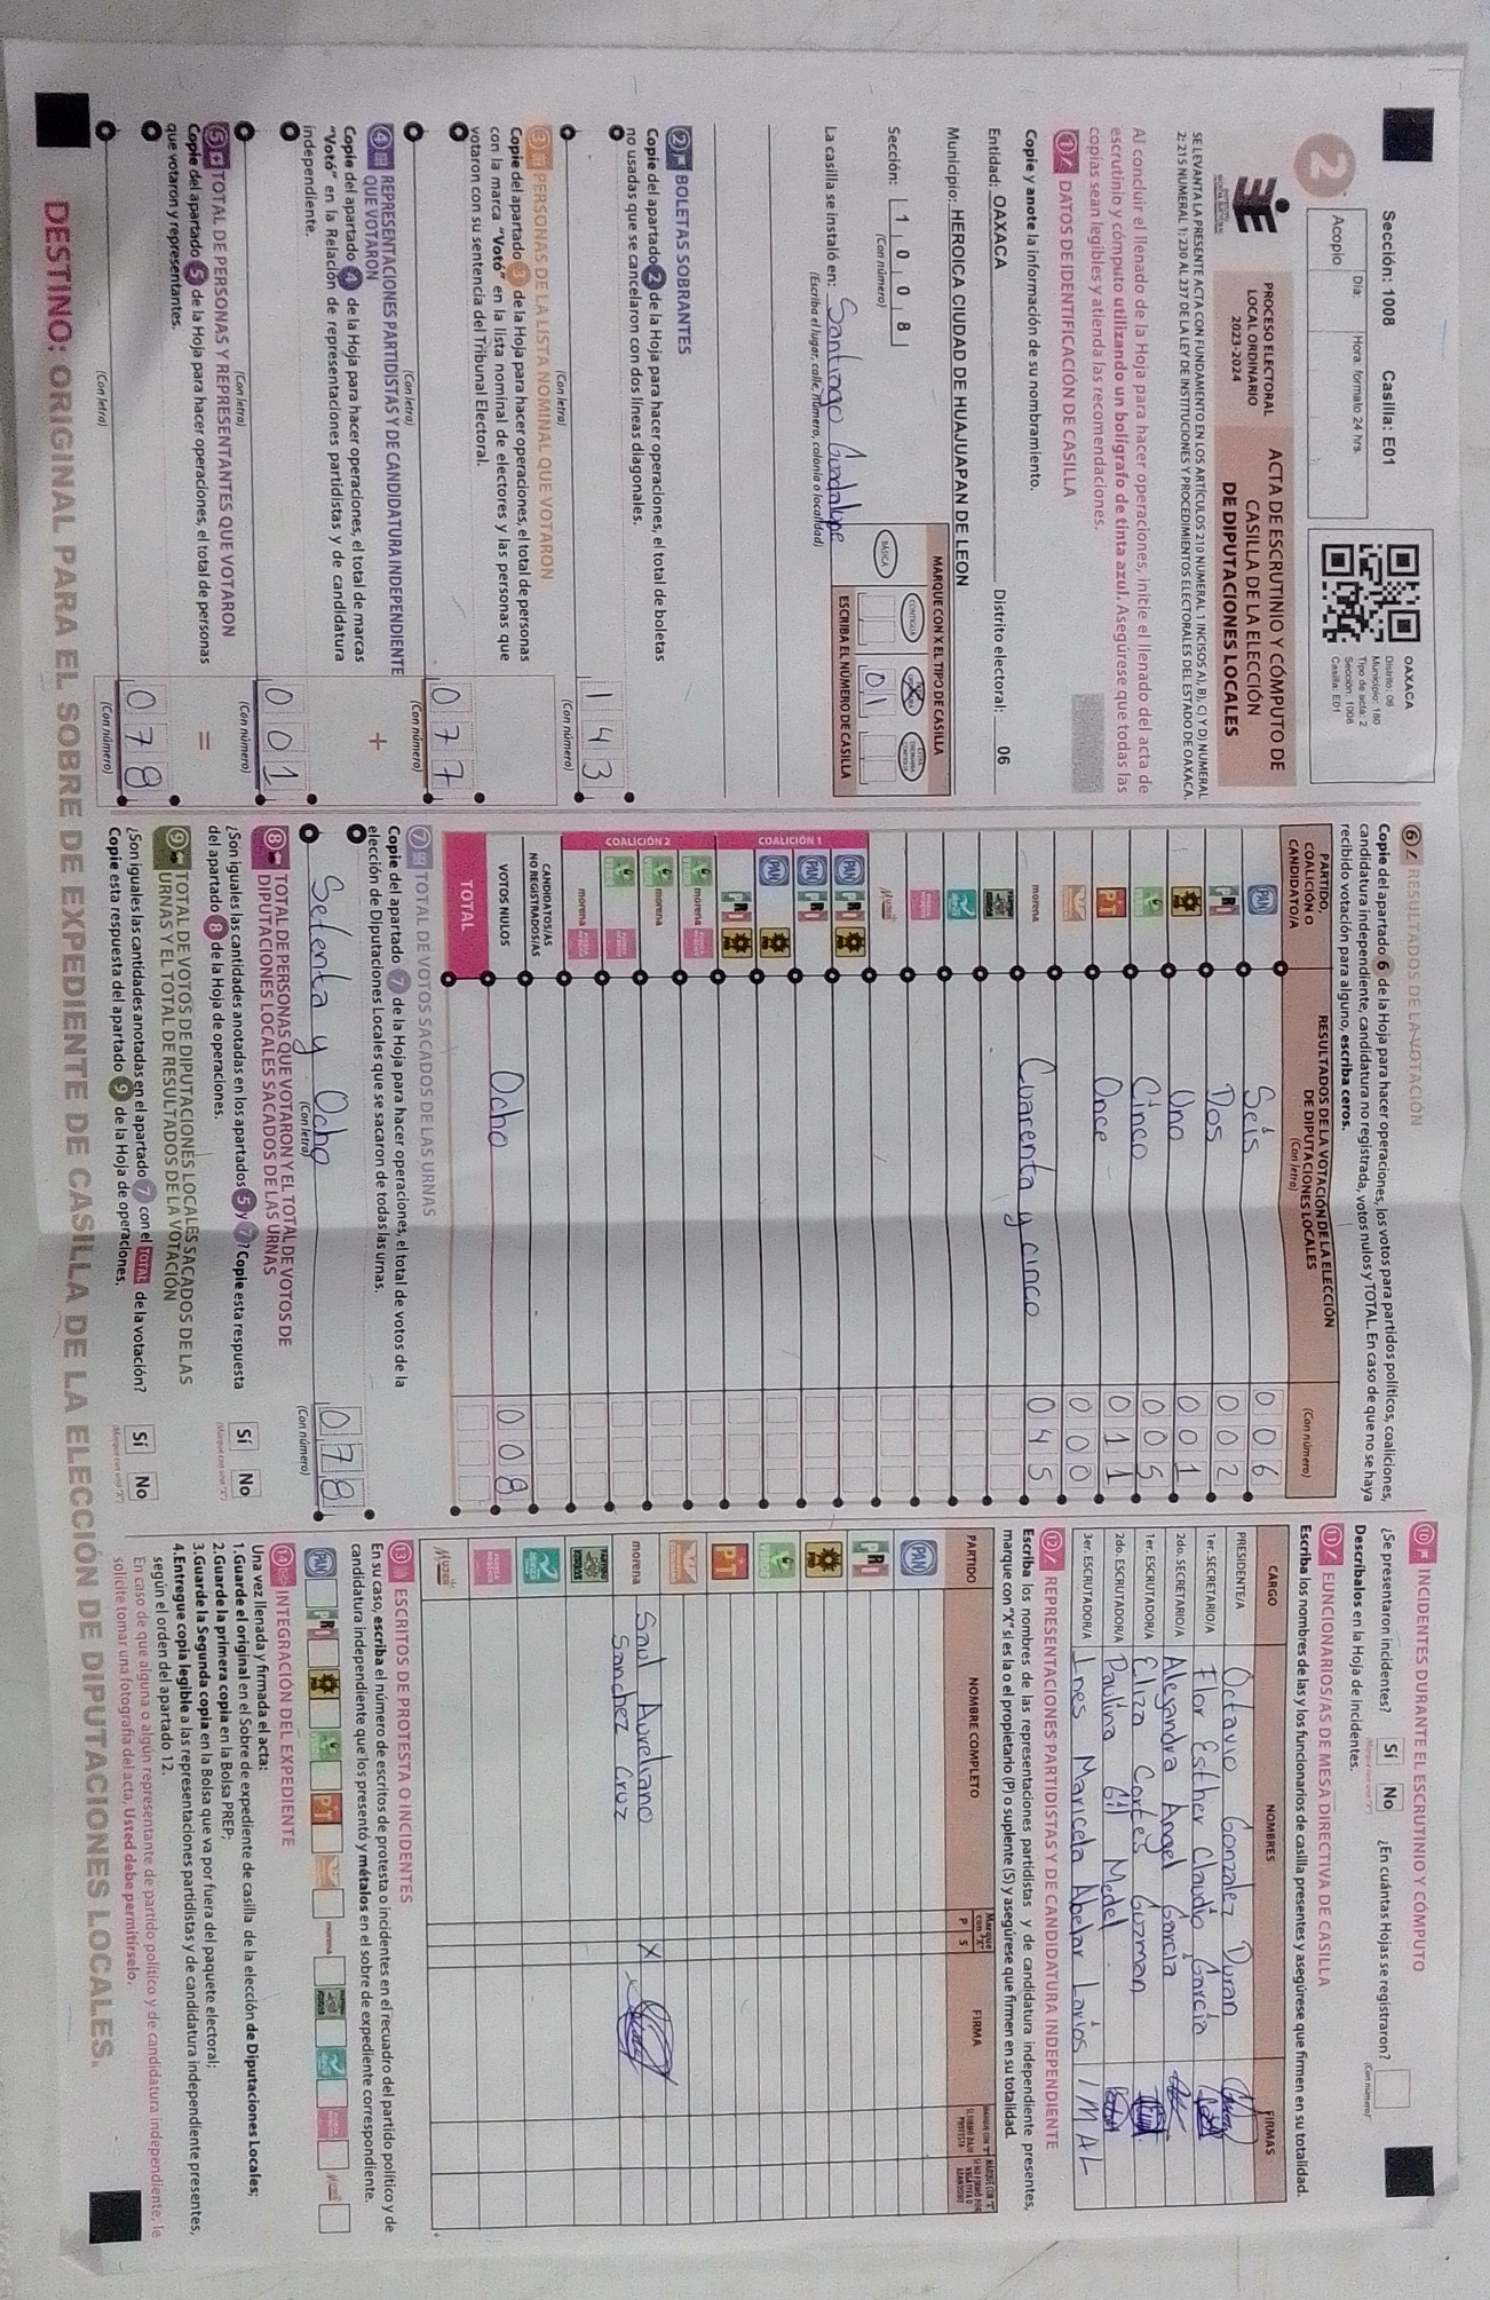 Sección: 1008 Casilla: E01
Día: Hora: formato 24 hrs.
Acopio
OAXACA
Distrito: 06
Municipio: 180
Tipo de acta: 2
Sección: 1008
Casilla: E01
2
PROCESO ELECTORAL
LOCAL ORDINARIO
2023-2024
ACTA DE ESCRUTINIO Y CÓMPUTO DE
CASILLA DE LA ELECCIÓN
DE DIPUTACIONES LOCALES
SE LEVANTA LA PRESENTE ACTA CON FUNDAMENTO EN LOS ARTÍCULOS 210 NUMERAL 1 INCISOS A), B), C) Y D) NUMERAL
2; 215 NUMERAL 1; 230 AL 237 DE LA LEY DE INSTITUCIONES Y PROCEDIMIENTOS ELECTORALES DEL ESTADO DE OAXACA.
Al concluir el llenado de la Hoja para hacer operaciones, inicie el llenado del acta de
escrutinio y cómputo utilizando un bolígrafo de tinta azul. Asegúrese que todas las
copias sean legibles y atienda las recomendaciones.
1 DATOS DE IDENTIFICACIÓN DE CASILLA
Copie y anote la información de su nombramiento.
Entidad: OAXACA Distrito electoral: 06
Municipio: HEROICA CIUDAD DE HUAJUAPAN DE LEON
Sección: 1 0 0 8
(Con número)
MARQUE CON X EL TIPO DE CASILLA
BÁSICA CONTIGUA X
01
ESCRIBA EL NÚMERO DE CASILLA
La casilla se instaló en: Santiago Guadalupe
(Escriba el lugar, calle, número, colonia o localidad)
2 BOLETAS SOBRANTES
Copie del apartado 2 de la Hoja para hacer operaciones, el total de boletas
no usadas que se cancelaron con dos líneas diagonales.
143
(Con letra) (Con número)
3 PERSONAS DE LA LISTA NOMINAL QUE VOTARON
Copie del apartado 3 de la Hoja para hacer operaciones, el total de personas
con la marca "Votó" en la lista nominal de electores y las personas que
votaron con su sentencia del Tribunal Electoral.
077
(Con letra) (Con número)
4 REPRESENTACIONES PARTIDISTAS Y DE CANDIDATURA INDEPENDIENTE
QUE VOTARON
+
Copie del apartado 4 de la Hoja para hacer operaciones, el total de marcas
"Votó" en la Relación de representaciones partidistas y de candidatura
independiente.
001
(Con letra) (Con número)
5 TOTAL DE PERSONAS Y REPRESENTANTES QUE VOTARON
=
Copie del apartado 5 de la Hoja para hacer operaciones, el total de personas
que votaron y representantes.
078
(Con letra) (Con número)
6 RESULTADOS DE LA VOTACIÓN
Copie del apartado 6 de la Hoja para hacer operaciones, los votos para partidos políticos, coaliciones,
candidatura independiente, candidatura no registrada, votos nulos y TOTAL. En caso de que no se haya
recibido votación para alguno, escriba ceros.
PARTIDO,
COALICIÓN O
CANDIDATO/A
RESULTADOS DE LA VOTACIÓN DE LA ELECCIÓN
DE DIPUTACIONES LOCALES
(Con letra)
(Con número)
PAN Seis 006
PRI Dos 002
PRD Uno 001
VERDE Cinco 005
PT Once 011
000
morena Cuarenta y cinco 045
MUJER
COALICIÓN 1
PAN PRI PRD
PAN PRI
PAN PRD
PRI PRD
COALICIÓN 2
VERDE morena
VERDE morena
VERDE
morena
CANDIDATOS/AS
NO REGISTRADOS/AS
VOTOS NULOS Ocho 008
TOTAL
7 TOTAL DE VOTOS SACADOS DE LAS URNAS
Copie del apartado 7 de la Hoja para hacer operaciones, el total de votos de la
elección de Diputaciones Locales que se sacaron de todas las urnas.
Setenta y Ocho 078
(Con letra) (Con número)
8 TOTAL DE PERSONAS QUE VOTARON Y EL TOTAL DE VOTOS DE
DIPUTACIONES LOCALES SACADOS DE LAS URNAS
¿Son iguales las cantidades anotadas en los apartados 5 y 7? Copie esta respuesta
del apartado 8 de la Hoja de operaciones.
Sí No
(Marque con una "X")
9 TOTAL DE VOTOS DE DIPUTACIONES LOCALES SACADOS DE LAS
URNAS Y EL TOTAL DE RESULTADOS DE LA VOTACIÓN
¿Son iguales las cantidades anotadas en el apartado 7 con el TOTAL de la votación?
Copie esta respuesta del apartado 9 de la Hoja de operaciones.
Sí No
(Marque con una "X")
10 INCIDENTES DURANTE EL ESCRUTINIO Y CÓMPUTO
¿Se presentaron incidentes? Sí No ¿En cuántas Hojas se registraron?
(Marque con una "X") (Con número)
Descríbalos en la Hoja de incidentes.
11 FUNCIONARIOS/AS DE MESA DIRECTIVA DE CASILLA
Escriba los nombres de las y los funcionarios de casilla presentes y asegúrese que firmen en su totalidad.
CARGO NOMBRES FIRMAS
PRESIDENTE/A Octavio Gonzalez Duran
1er. SECRETARIO/A Flor Esther Claudio García
2do. SECRETARIO/A Alejandra Angel García
1er. ESCRUTADOR/A Eliza Cortes Guzman
2do. ESCRUTADOR/A Paulina Gil Medel
3er. ESCRUTADOR/A Ines Maricela Abelar Larios IMAL
12 REPRESENTACIONES PARTIDISTAS Y DE CANDIDATURA INDEPENDIENTE
Escriba los nombres de las representaciones partidistas y de candidatura independiente presentes,
marque con "X" si es la o el propietario (P) o suplente (S) y asegúrese que firmen en su totalidad.
PARTIDO NOMBRE COMPLETO Marque con "X" P S FIRMA
PAN
PRI
PRD
VERDE
PT
morena Saul Aureliano X
Sanchez Cruz
MUJER
13 ESCRITOS DE PROTESTA O INCIDENTES
En su caso, escriba el número de escritos de protesta o incidentes en el recuadro del partido político y de
candidatura independiente que los presentó y métalos en el sobre de expediente correspondiente.
PAN PRI PRD VERDE PT morena
14 INTEGRACIÓN DEL EXPEDIENTE
Una vez llenada y firmada el acta:
1.Guarde el original en el Sobre de expediente de casilla de la elección de Diputaciones Locales;
2.Guarde la primera copia en la Bolsa PREP;
3.Guarde la Segunda copia en la Bolsa que va por fuera del paquete electoral;
4.Entregue copia legible a las representaciones partidistas y de candidatura independiente presentes,
según el orden del apartado 12.
En caso de que alguna o algún representante de partido político y de candidatura independiente, le
solicite tomar una fotografía del acta, Usted debe permitírselo.
DESTINO: ORIGINAL PARA EL SOBRE DE EXPEDIENTE DE CASILLA DE LA ELECCIÓN DE DIPUTACIONES LOCALES.